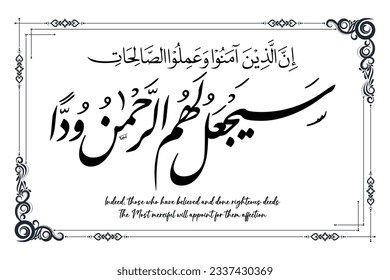 إِنَّ الَّذِينَ آمَنُوا وَعَمِلُوا الصَّالِحَاتِ
سَيَجْعَلُ لَهُمُ الرَّحْمٰنُ وُدًّا
Indeed, those who have believed and done righteous deeds
The Most merciful will appoint for them affection
shutterstock.com · 2337430369